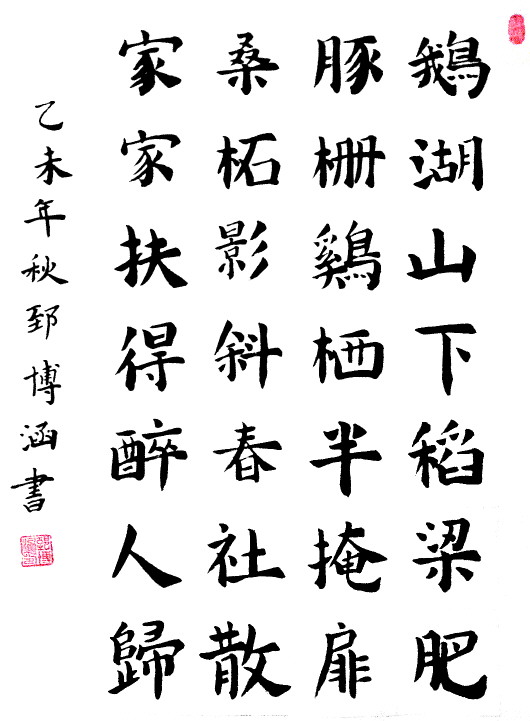 鵝湖山下稻梁肥
豚柵鷄栖半掩扉
桑柘影斜春社散
家家扶得醉人歸
乙未年秋郅博涵書